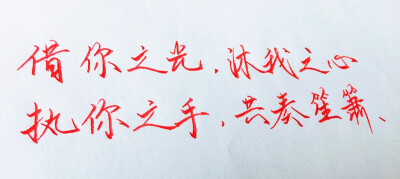 借你之光，沐我之心
执你之手，共奏笙箫、